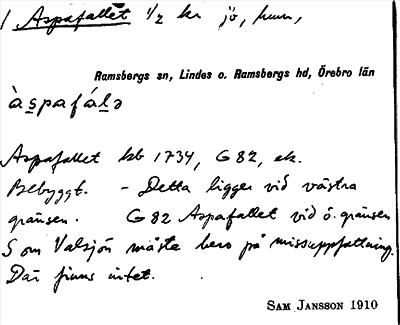 1 Aspafallet 1/2 kr jö, hmn,
Ramsbergs sn, Lindes o. Ramsbergs hd, Örebro län
àspafálə
Aspafallet kb 1734, G 82, ek.
Bebyggt. - Detta ligger vid västra
gränsen. G 82 Aspafallet vid ö. gränsen
S om Valsjön måste bero på missuppfattning.
Där finns intet.
SAM JANSSON 1910